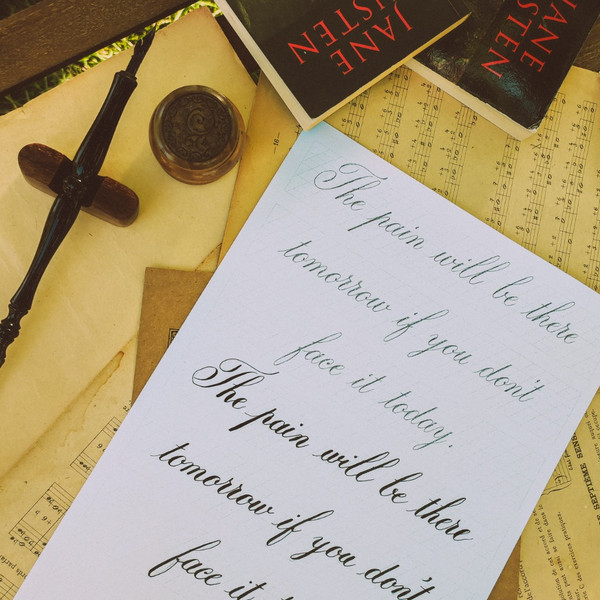 JANE
AUSTEN
JANE
AUSTEN
The pain will be there
tomorrow if you don't
face it today.
The pain will be there
tomorrow if you don't
face it